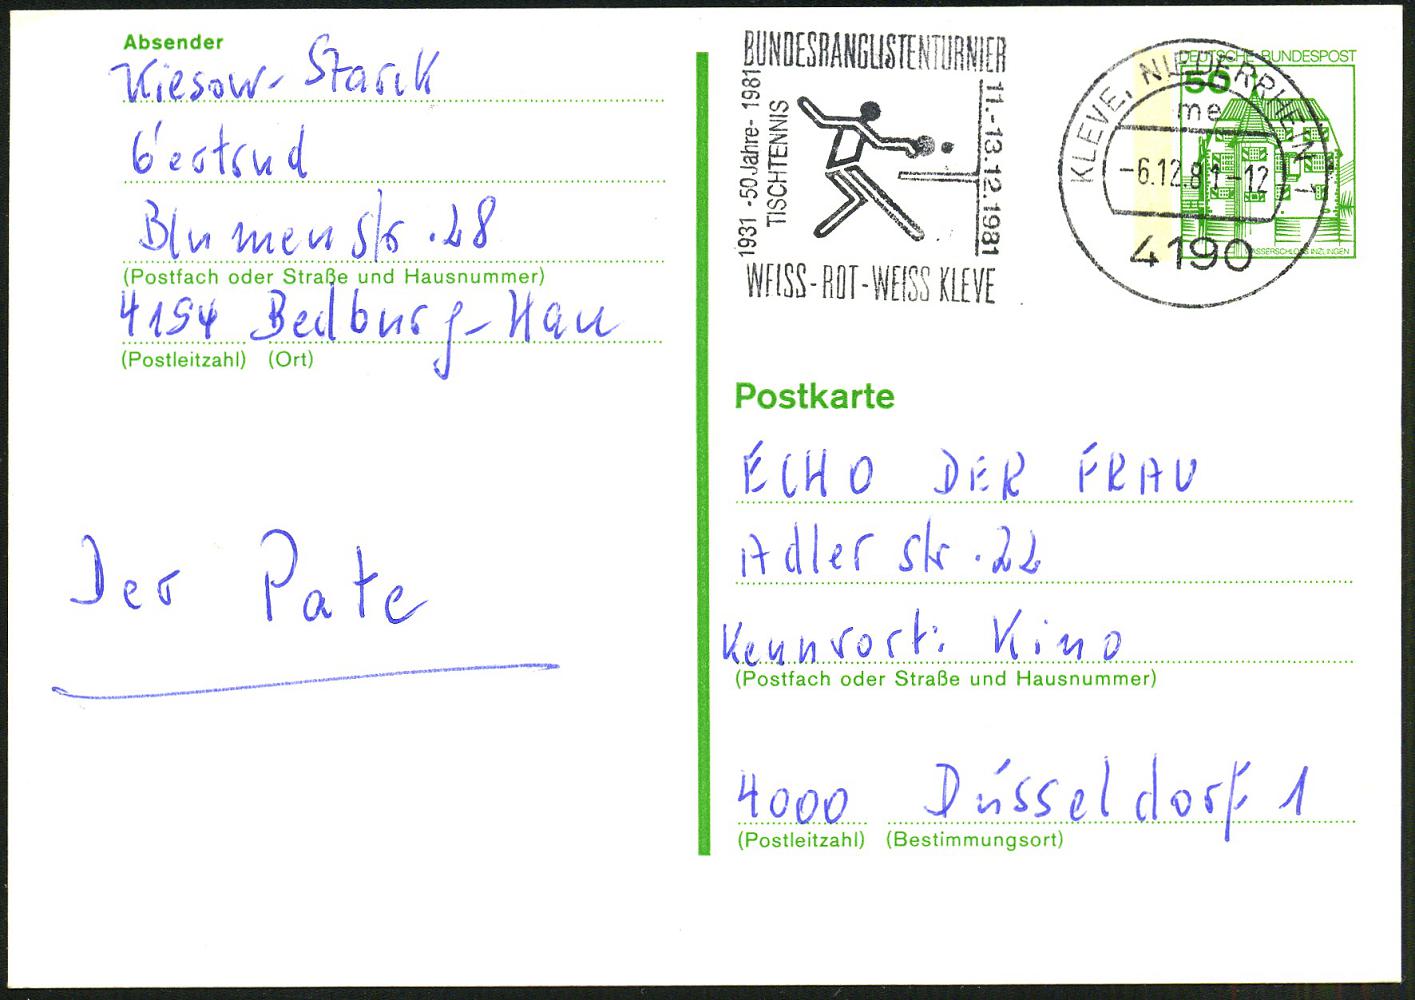 Absender
Kiesow-Starck
Gertrud
Blumenstr. 28
(Postfach oder Straße und Hausnummer)
4194 Bedburg-Hau
(Postleitzahl) (Ort)
Der Pate
BUNDESRANGLISTENTURNIER
1931 - 50 Jahre - 1981
TISCHTENNIS
11.-13.12.1981
WEISS-ROT-WEISS KLEVE
KLEVE, NIEDERRHEIN 1
me
-6.12.81-12
4190
DEUTSCHE BUNDESPOST
50
WASSERSCHLOSS INZLINGEN
Postkarte
ECHO DER FRAU
Adlerstr. 22
Kennwort: Kino
(Postfach oder Straße und Hausnummer)
4000 Düsseldorf 1
(Postleitzahl) (Bestimmungsort)